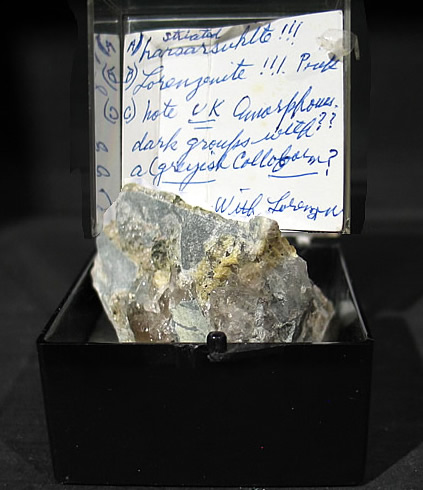 Striated
A) narsarsukite !!!
B) Lorenzenite !!! Pink
C) note UK Amorphous
dark groups with??
a (greyish Colloform?
With Lorenzen